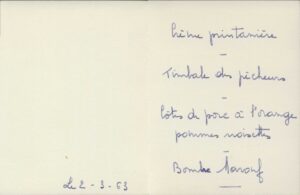 Crème printanière
-
Timbale des pêcheurs
-
Côtes de porc à l'orange
pommes noisettes
-
Bombe
Le 2 - 3 - 63